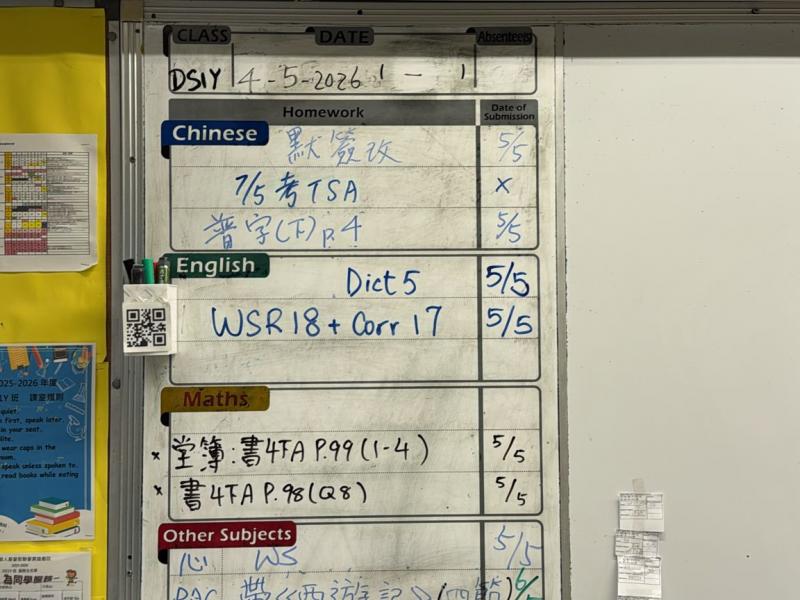 CLASS DATE Absentee(s)
DS1Y 4-5-2026 1 - 1
Homework Date of Submission
Chinese
默簽改 5/5
7/5 考TSA x
普字(下)p.4 5/5
English
Dict 5 5/5
WSR 18 + Corr 17 5/5
Maths
x 堂簿:書4TA P.99 (1-4) 5/5
x 書4TA P.98 (Q8) 5/5
Other Subjects
心 WS 5/5
RAC 帶《西遊記》(四節) 6/5
2025-2026 年度
1Y 班 課室規則
quiet.
first, speak later.
in your seat.
wear caps in the
speak unless spoken to.
read books while eating
為同學服務